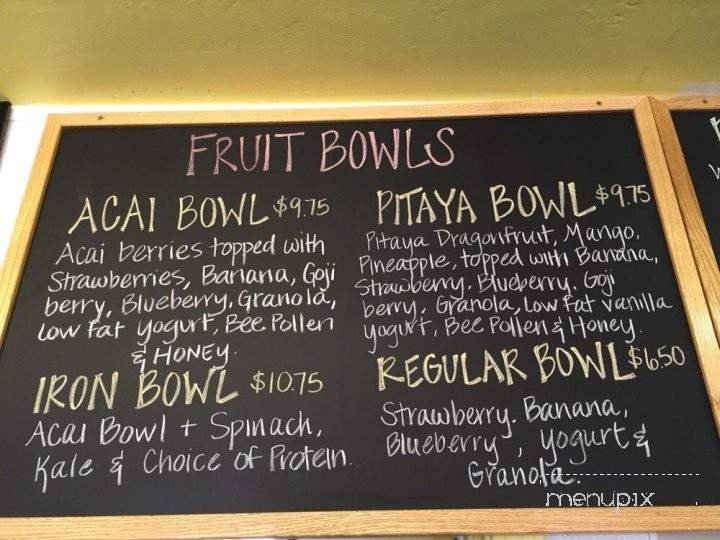 FRUIT BOWLS
ACAI BOWL $9.75
Acai berries topped with
Strawberries, Banana, Goji
berry, Blueberry, Granola,
Low Fat yogurt, Bee Pollen
& HONEY.
IRON BOWL $10.75
Acai Bowl + Spinach,
Kale & Choice of Protein.
PITAYA BOWL $9.75
Pitaya Dragonfruit, Mango,
Pineapple, topped with Banana,
Strawberry, Blueberry, Goji
berry, Granola, Low Fat vanilla
yogurt, Bee Pollen & Honey.
REGULAR BOWL $6.50
Strawberry, Banana,
Blueberry, yogurt &
Granola.
menupix